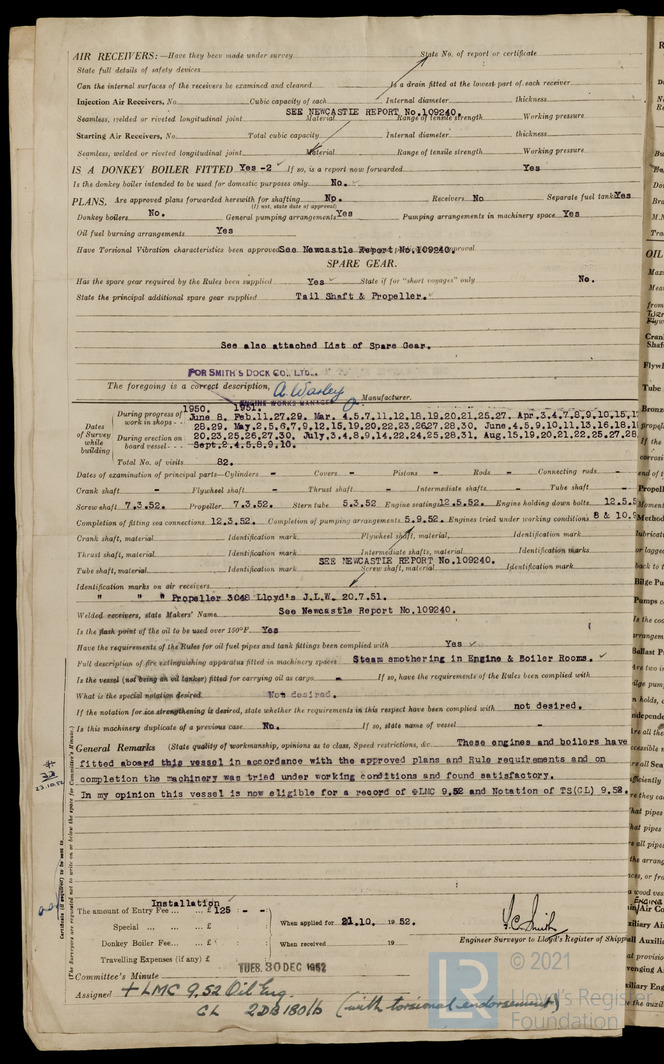 AIR RECEIVERS:—Have they been made under survey State No. of report or certificate
State full details of safety devices
Can the internal surfaces of the receivers be examined and cleaned Is a drain fitted at the lowest part of each receiver
Injection Air Receivers, No. Cubic capacity of each Internal diameter thickness
SEE NEWCASTLE REPORT No.109240.
Seamless, welded or riveted longitudinal joint Material Range of tensile strength Working pressure
Starting Air Receivers, No. Total cubic capacity Internal diameter thickness
Seamless, welded or riveted longitudinal joint Material Range of tensile strength Working pressure
IS A DONKEY BOILER FITTED Yes -2 If so, is a report now forwarded Yes
Is the donkey boiler intended to be used for domestic purposes only No.
PLANS. Are approved plans forwarded herewith for shafting No. Receivers No Separate fuel tanks Yes
(If not, state date of approval)
Donkey boilers No. General pumping arrangements Yes Pumping arrangements in machinery space Yes
Oil fuel burning arrangements Yes
Have Torsional Vibration characteristics been approved See Newcastle Report No.109240. approval
SPARE GEAR.
Has the spare gear required by the Rules been supplied Yes State if for "short voyages" only No.
State the principal additional spare gear supplied Tail Shaft & Propeller.
See also attached List of Spare Gear.
FOR SMITH'S DOCK CO., LTD.
The foregoing is a correct description, A. Warley Manufacturer.
ENGINE WORKS MANAGER
1950. 1951.
Dates of Survey while building
During progress of work in shops - - June 8. Feb.11.27.29. Mar. 4.5.7.11.12.18.19.20.21.25.27. Apr.3.4.7.8.9.10.15.1
28.29. May.2.5.6.7.9.12.15.19.20.22.23.26.27.28.30. June.4.5.9.10.11.13.16.18.1
During erection on board vessel - - - 20.23.25.26.27.30. July.3.4.8.9.14.22.24.25.28.31. Aug.15.19.20.21.22.25.27.28
Sept.2.4.5.8.9.10.
Total No. of visits 82.
Dates of examination of principal parts—Cylinders - Covers - Pistons - Rods - Connecting rods -
Crank shaft - Flywheel shaft - Thrust shaft - Intermediate shafts - Tube shaft -
Screw shaft 7.3.52. Propeller 7.3.52. Stern tube 5.3.52 Engine seatings 12.5.52. Engine holding down bolts 12.5.5
Completion of fitting sea connections 12.3.52. Completion of pumping arrangements 5.9.52. Engines tried under working conditions 8 & 10.9
Crank shaft, material Identification mark Flywheel shaft, material, Identification mark
Thrust shaft, material Identification mark Intermediate shafts, material Identification marks
SEE NEWCASTLE REPORT No.109240.
Tube shaft, material Identification mark Screw shaft, material Identification mark
Identification marks on air receivers
" " " Propeller 3048 Lloyd's J.L.W. 20.7.51.
Welded receivers, state Makers' Name See Newcastle Report No.109240.
Is the flash point of the oil to be used over 150°F. Yes
Have the requirements of the Rules for oil fuel pipes and tank fittings been complied with Yes
Full description of fire extinguishing apparatus fitted in machinery spaces Steam smothering in Engine & Boiler Rooms.
Is the vessel (not being an oil tanker) fitted for carrying oil as cargo - If so, have the requirements of the Rules been complied with
What is the special notation desired Not desired.
If the notation for ice strengthening is desired, state whether the requirements in this respect have been complied with not desired.
Is this machinery duplicate of a previous case No. If so, state name of vessel -
General Remarks (State quality of workmanship, opinions as to class, Speed restrictions, &c. These engines and boilers have
fitted aboard this vessel in accordance with the approved plans and Rule requirements and on
completion the machinery was tried under working conditions and found satisfactory.
In my opinion this vessel is now eligible for a record of ✠LMC 9.52 and Notation of TS(CL) 9.52.
Certificate (if required) to be sent to
(The Surveyors are requested not to write on or below the space for Committee's Minute.)
Installation
The amount of Entry Fee ... £ 125 : - - When applied for 21.10. 19 52.
Special ... £
Donkey Boiler Fee... £ When received 19
Travelling Expenses (if any) £
Engineer Surveyor to Lloyd's Register of Shipp
TUES. 30 DEC 1952
Committee's Minute
Assigned + LMC 9.52 Oil Eng.
CL 2DB 180lb (with torsional endorsement)
LR © 2021
Lloyd's Register
Foundation